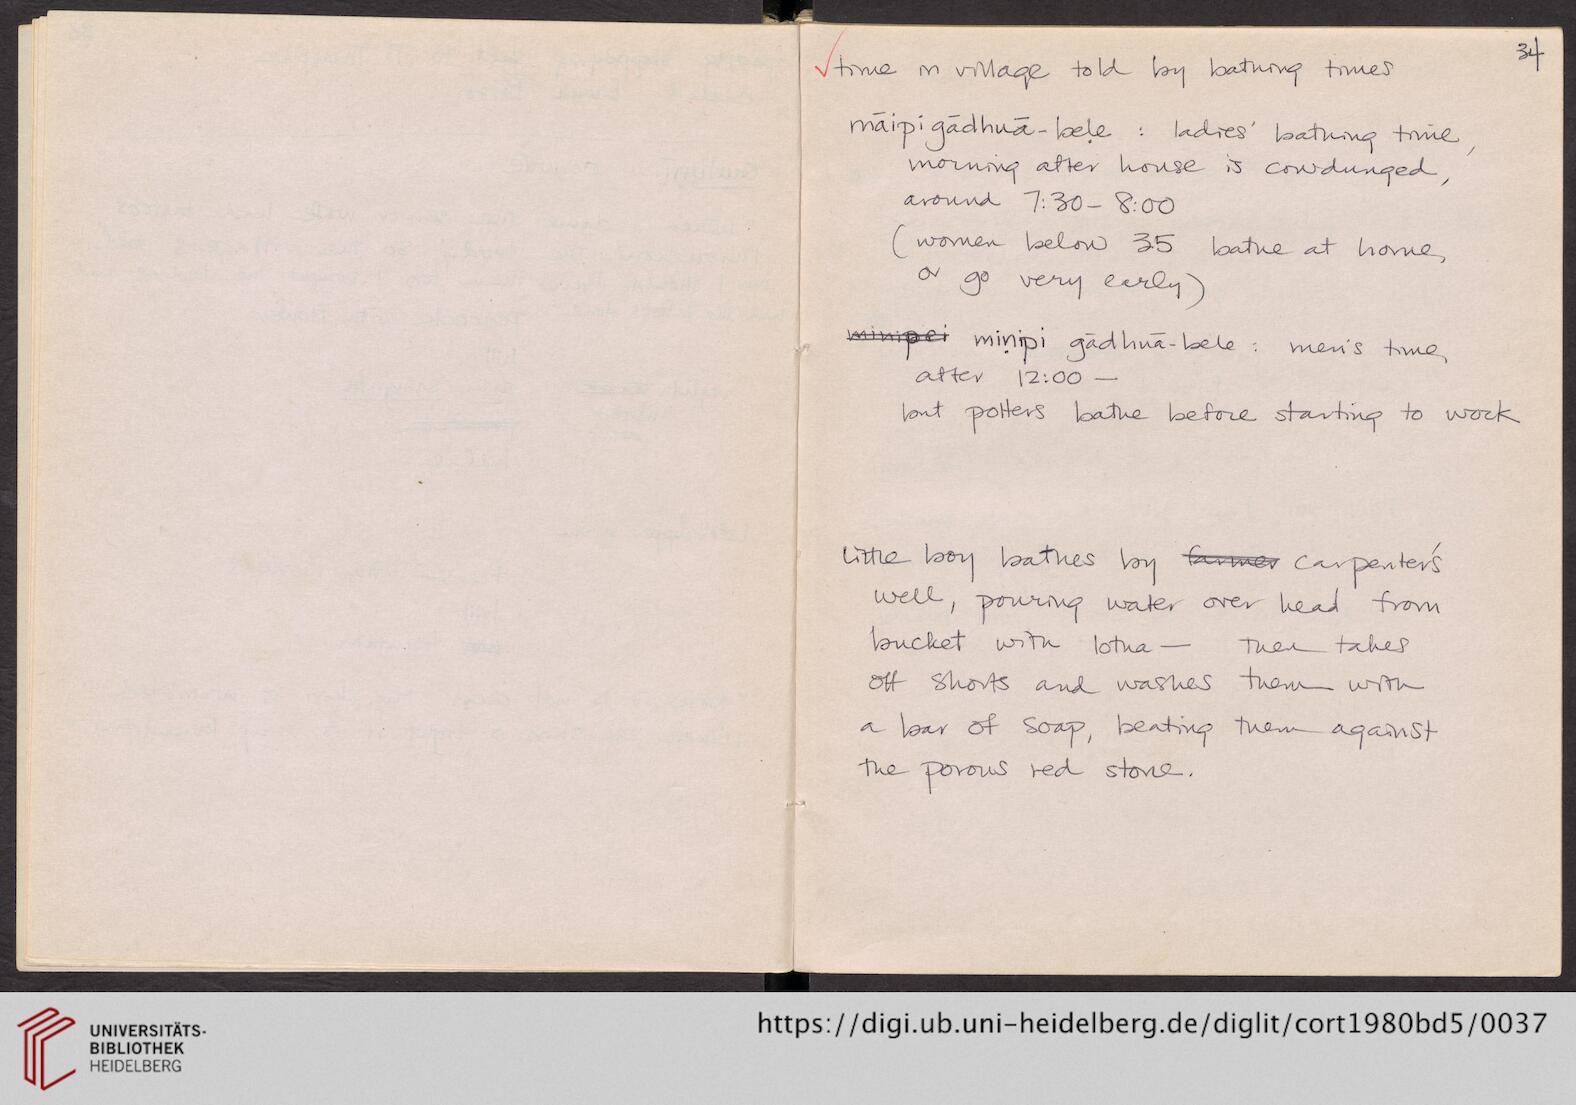 34
✓time in village told by bathing times
māipi gādhuā-beḷe : ladies' bathing time,
morning after house is cowdunged,
around 7:30 – 8:00
(women below 35 bathe at home,
or go very early)
minipei miṇipi gādhuā-bele : men's time,
after 12:00 —
but potters bathe before starting to work
Little boy bathes by farmer carpenter's
well, pouring water over head from
bucket with lotha — then takes
off shorts and washes them with
a bar of soap, beating them against
the porous red stone.
UNIVERSITÄTS-
BIBLIOTHEK
HEIDELBERG
https://digi.ub.uni-heidelberg.de/diglit/cort1980bd5/0037